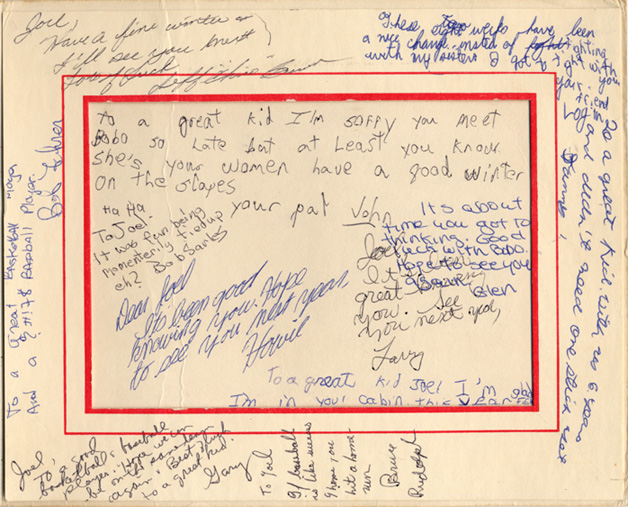 Joel,
Have a fine winter &
I'll see you next
Lots of luck
These weeks have been
a nice change insted of fighting
with my sisters I got to fight with you
your friend
To a great kid with no 6 years
and didn't need one this year
Danny
To a great kid I'm sorry you meet
Bobo so late but at Least you know
she's your women have a good winter
on the slopes
your pal John
Ha Ha
To Joel:
It was fun being
momenterily tiedup
eh? Bob Sarles
It's about
time you got to
thinking. Good
luck with Bobo.
Hope to see you
again Glen
Joel
It's been
great
you. See
you next year,
Larry
Dear Joel
Its been good
knowing you. Hope
to see you next year,
Howie
To a great kid Joel I'm glad
I'm in your cabin this year
To a Great Basketball Player
And a $#!?8 Baseball Player.
Bob
Joel
To, a good
basketball & baseball
player. Hope we can
be on the same team
again & Best of luck
to a great kid.
Gary
To Joel
If baseball
is like
I hope you
hit a home-
run
Bruce
Rudolph